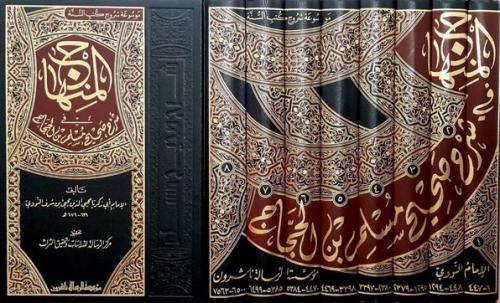 موسوعة شروح كتب السنة
المنهاج
في
شرح صحيح مسلم بن الحجاج
تأليف
الإمام أبي زكريا محيي الدين يحيى بن شرف النووي
٦٣١ - ٦٧٦ هـ
تحقيق
مركز الرسالة للدراسات وتحقيق التراث
مؤسسة الرسالة ناشرون
موسوعة شروح كتب السنة
المنهاج
في شرح صحيح
مسلم بن الحجاج
٨ ٧ ٦ ٥ ٤ ٣ ٢ ١
الإمام النووي
مؤسسة الرسالة ناشرون